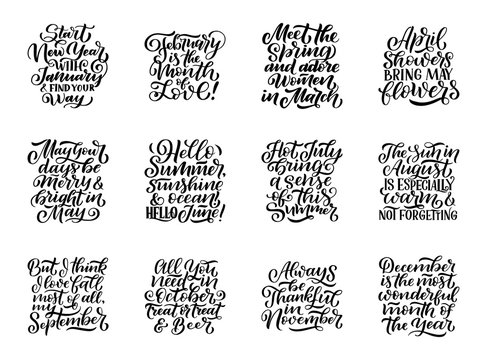 Start
New Year
with
January
& find your
Way
February
is the
Month
of
Love!
Meet the
Spring
and adore
Women
in March
April
Showers
bring May
flowers
May your
days be
Merry &
bright in
May
Hello
Summer,
sunshine
& ocean,
Hello June!
Hot July
bring
a sense
of this
summer
The Sun in
August
is especially
warm &
not forgetting
But I think
I love fall
most of all,
my
September
All You
need in
October
treat or treat
& Beer
Always
be
Thankful
in
November
December
is the most
wonderful
month of
the Year